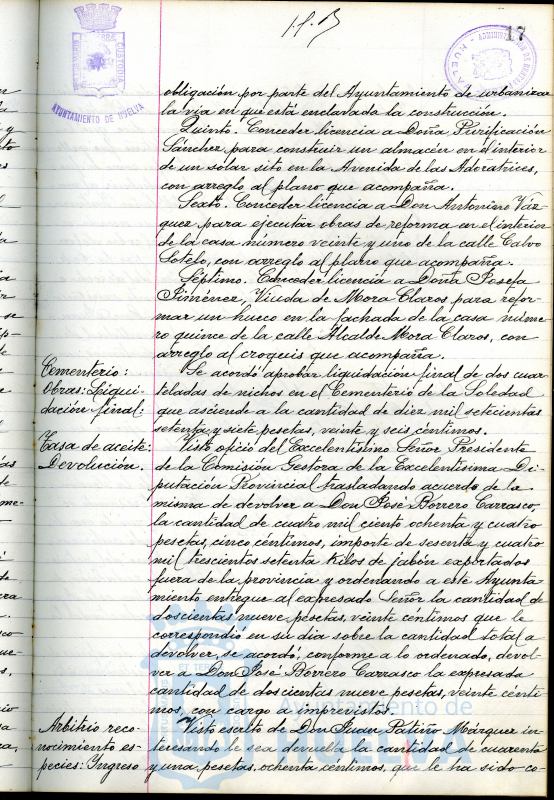 17
AYUNTAMIENTO DE HUELVA
obligación por parte del Ayuntamiento de urbanizar
la vía en que está enclavada la construcción.
Quinto. Conceder licencia a Doña Purificación
Sánchez para construir un almacén en el interior
de un solar sito en la Avenida de las Adoratrices,
con arreglo al plano que acompaña.
Sexto. Conceder licencia a Don Antoniero Váz-
quez para ejecutar obras de reforma en el interior
de la casa numero veinte y uno de la calle Calvo
Sotelo, con arreglo al plano que acompaña.
Séptimo. Conceder licencia a Doña Josefa
Jiménez, Viuda de Mora Claros, para refor-
mar un hueco en la fachada de la casa núme
ro quince de la calle Alcalde Mora Claros, con
arreglo al croquis que acompaña.
Cementerio:
Obras: Liqui-
dación final:
Se acordó aprobar liquidación final de dos cuar
teladas de nichos en el Cementerio de la Soledad
que asciende a la cantidad de diez mil setecientas
setenta y siete pesetas, veinte y seis céntimos.
Tasa de aceite:
Devolución.
Visto oficio del Excelentísimo Señor Presidente
de la Comisión Gestora de la Excelentísima Di-
putación Provincial trasladando acuerdo de la
misma de devolver a Don José Borrero Carrasco,
la cantidad de cuatro mil ciento ochenta y cuatro
pesetas, cinco céntimos, importe de sesenta y cuatro
mil trescientos setenta kilos de jabón exportados
fuera de la provincia y ordenando a este Ayunta
miento entregue al expresado Señor la cantidad de
doscientas nueve pesetas, veinte céntimos que le
correspondió en su día sobre la cantidad total a
devolver, se acordó, conforme a lo ordenado, devol
ver a Don José Borrero Carrasco la expresada
cantidad de doscientas nueve pesetas, veinte cénti
mos, con cargo a imprevistos.
Arbitrio reco-
nocimiento es-
pecies: Ingreso
Visto escrito de Don Juan Patiño Márquez in-
teresando le sea devuelta la cantidad de cuarenta
y una pesetas, ochenta céntimos, que le ha sido co-
Ayuntamiento de
HUELVA